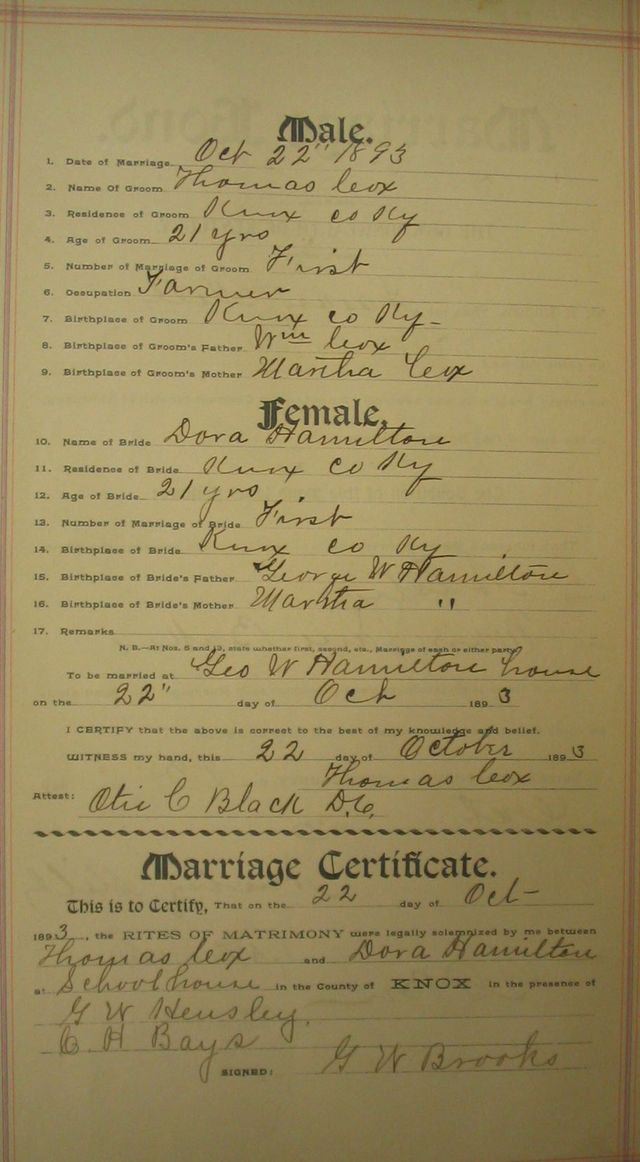 Male.
1. Date of Marriage Oct 22" 1893
2. Name Of Groom Thomas Cox
3. Residence of Groom Knox Co Ky
4. Age of Groom 21 yrs
5. Number of Marriage of Groom First
6. Occupation Farmer
7. Birthplace of Groom Knox Co Ky
8. Birthplace of Groom's Father Wm Cox
9. Birthplace of Groom's Mother Martha Cox
Female.
10. Name of Bride Dora Hamilton
11. Residence of Bride Knox Co Ky
12. Age of Bride 21 yrs
13. Number of Marriage of Bride First
14. Birthplace of Bride Knox Co Ky
15. Birthplace of Bride's Father George W Hamilton
16. Birthplace of Bride's Mother Martha "
17. Remarks
N. B.—At Nos. 5 and 13, state whether first, second, etc., Marriage of each or either party.
To be married at Geo W Hamilton house
on the 22" day of Oct 1893
I CERTIFY that the above is correct to the best of my knowledge and belief.
WITNESS my hand, this 22 day of October 1893
Thomas Cox
Attest: Otis C Black D.C.
Marriage Certificate.
This is to Certify, That on the 22 day of Oct
1893, the RITES OF MATRIMONY were legally solemnized by me between
Thomas Cox and Dora Hamilton
at School house in the County of KNOX in the presence of
G W Hensley
C H Bays
SIGNED: G W Brooks